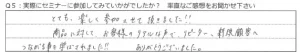 Q5:実際にセミナーに参加してみていかがでしたか? 率直なご感想をお聞かせ下さい
とても、楽しく参加させて頂きました!!
商品に対して、お客様のリアルな声で、リピーター、新規顧客へ
つながる事を学ばせて頂きました!! ありがとうございました。